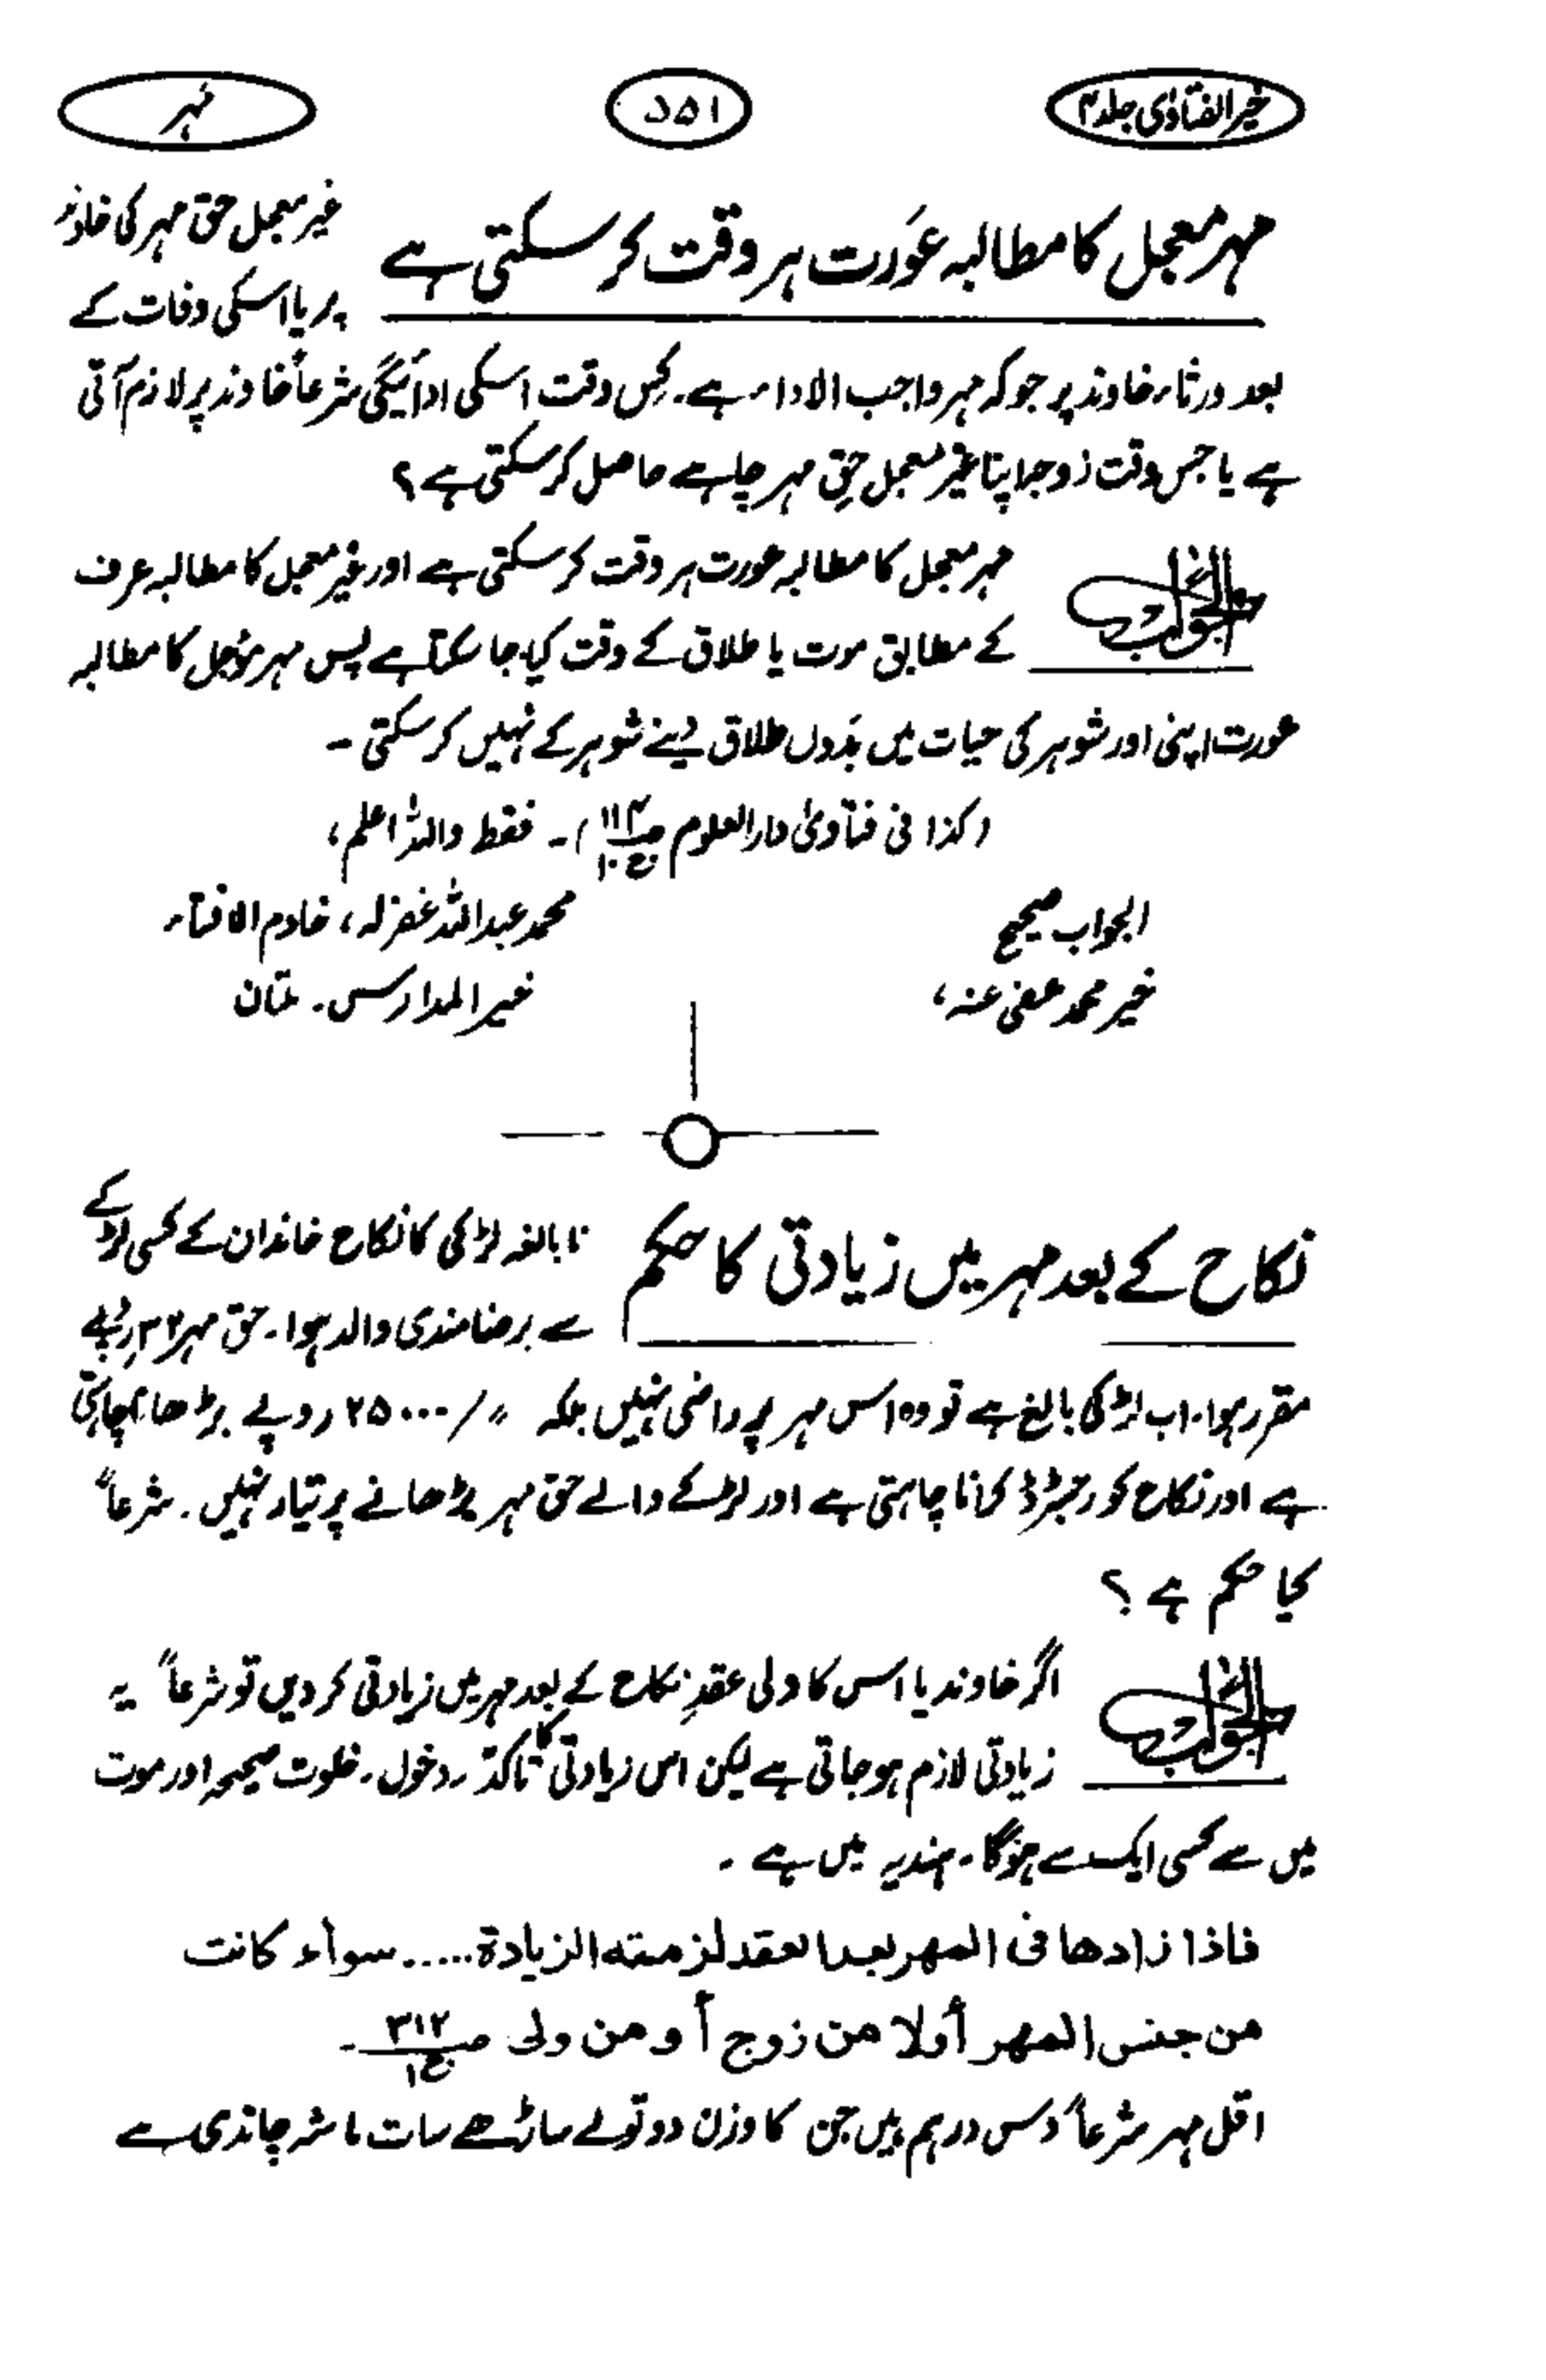 خیر الفتاویٰ جلد ۴
۵۵۱
مہر
مہر معجل کا مطالبہ عورت ہر وقت کر سکتی ہے
غیر معجل حق مہر کی خاوند
پر یا اسکی وفات کے
بعد ورثاء خاوند پر جو کہ مہر واجب الاداء ہے۔ کس وقت اسکی ادائیگی شرعاً خاوند پر لازم آتی
ہے یا جس وقت زوجہ اپنا غیر معجل حق مہر چاہے حاصل کر سکتی ہے؟
الجواب
مہر معجل کا مطالبہ عورت ہر وقت کر سکتی ہے اور غیر معجل کا مطالبہ عرف
کے مطابق موت یا طلاق کے وقت کیا جا سکتا ہے پس مہر مؤجل کا مطالبہ
عورت اپنی اور شوہر کی حیات میں بدوں طلاق دینے شوہر کے نہیں کر سکتی ۔
(کذا فی فتاویٰ دار العلوم ج۱۰)۔ فقط واللہ اعلم،
محمد عبداللہ غفرلہ، خادم الافتاء
خیر المدارس۔ ملتان
الجواب صحیح
خیر محمد عفی عنہ،
نکاح کے بعد مہر میں زیادتی کا حکم
نا بالغہ لڑکی کا نکاح خاندان کے کسی لڑکے
سے برضامندی والد ہوا۔ حق مہر ۳۲ روپے
مقرر ہوا۔ اب لڑکی بالغ ہے تو وہ اس مہر پر راضی نہیں بلکہ /۲۵۰۰۰ روپے بڑھانا چاہتی
ہے اور نکاح کو رجسٹرڈ کرانا چاہتی ہے اور لڑکے والے حق مہر بڑھانے پر تیار نہیں۔ شرعاً
کیا حکم ہے ؟
الجواب
اگر خاوند یا اس کا ولی عقدِ نکاح کے بعد مہر میں زیادتی کر دیں تو شرعاً یہ
زیادتی لازم ہو جاتی ہے لیکن اس زیادتی کا تأکد، دخول۔ خلوت صحیحہ اور موت
میں سے کسی ایک سے ہوگا۔ ہندیہ میں ہے ۔
فاذا زادها فی المهر بعد العقد لزمته الزیادة ..... سواء کانت
من جنس المهر أولا من زوج أو من ولی ص۳۱۲ ج۱ ۔
اقل مہر شرعاً دس درہم ہیں جن کا وزن دو تولے ساڑھے سات ماشہ چاندی ہے